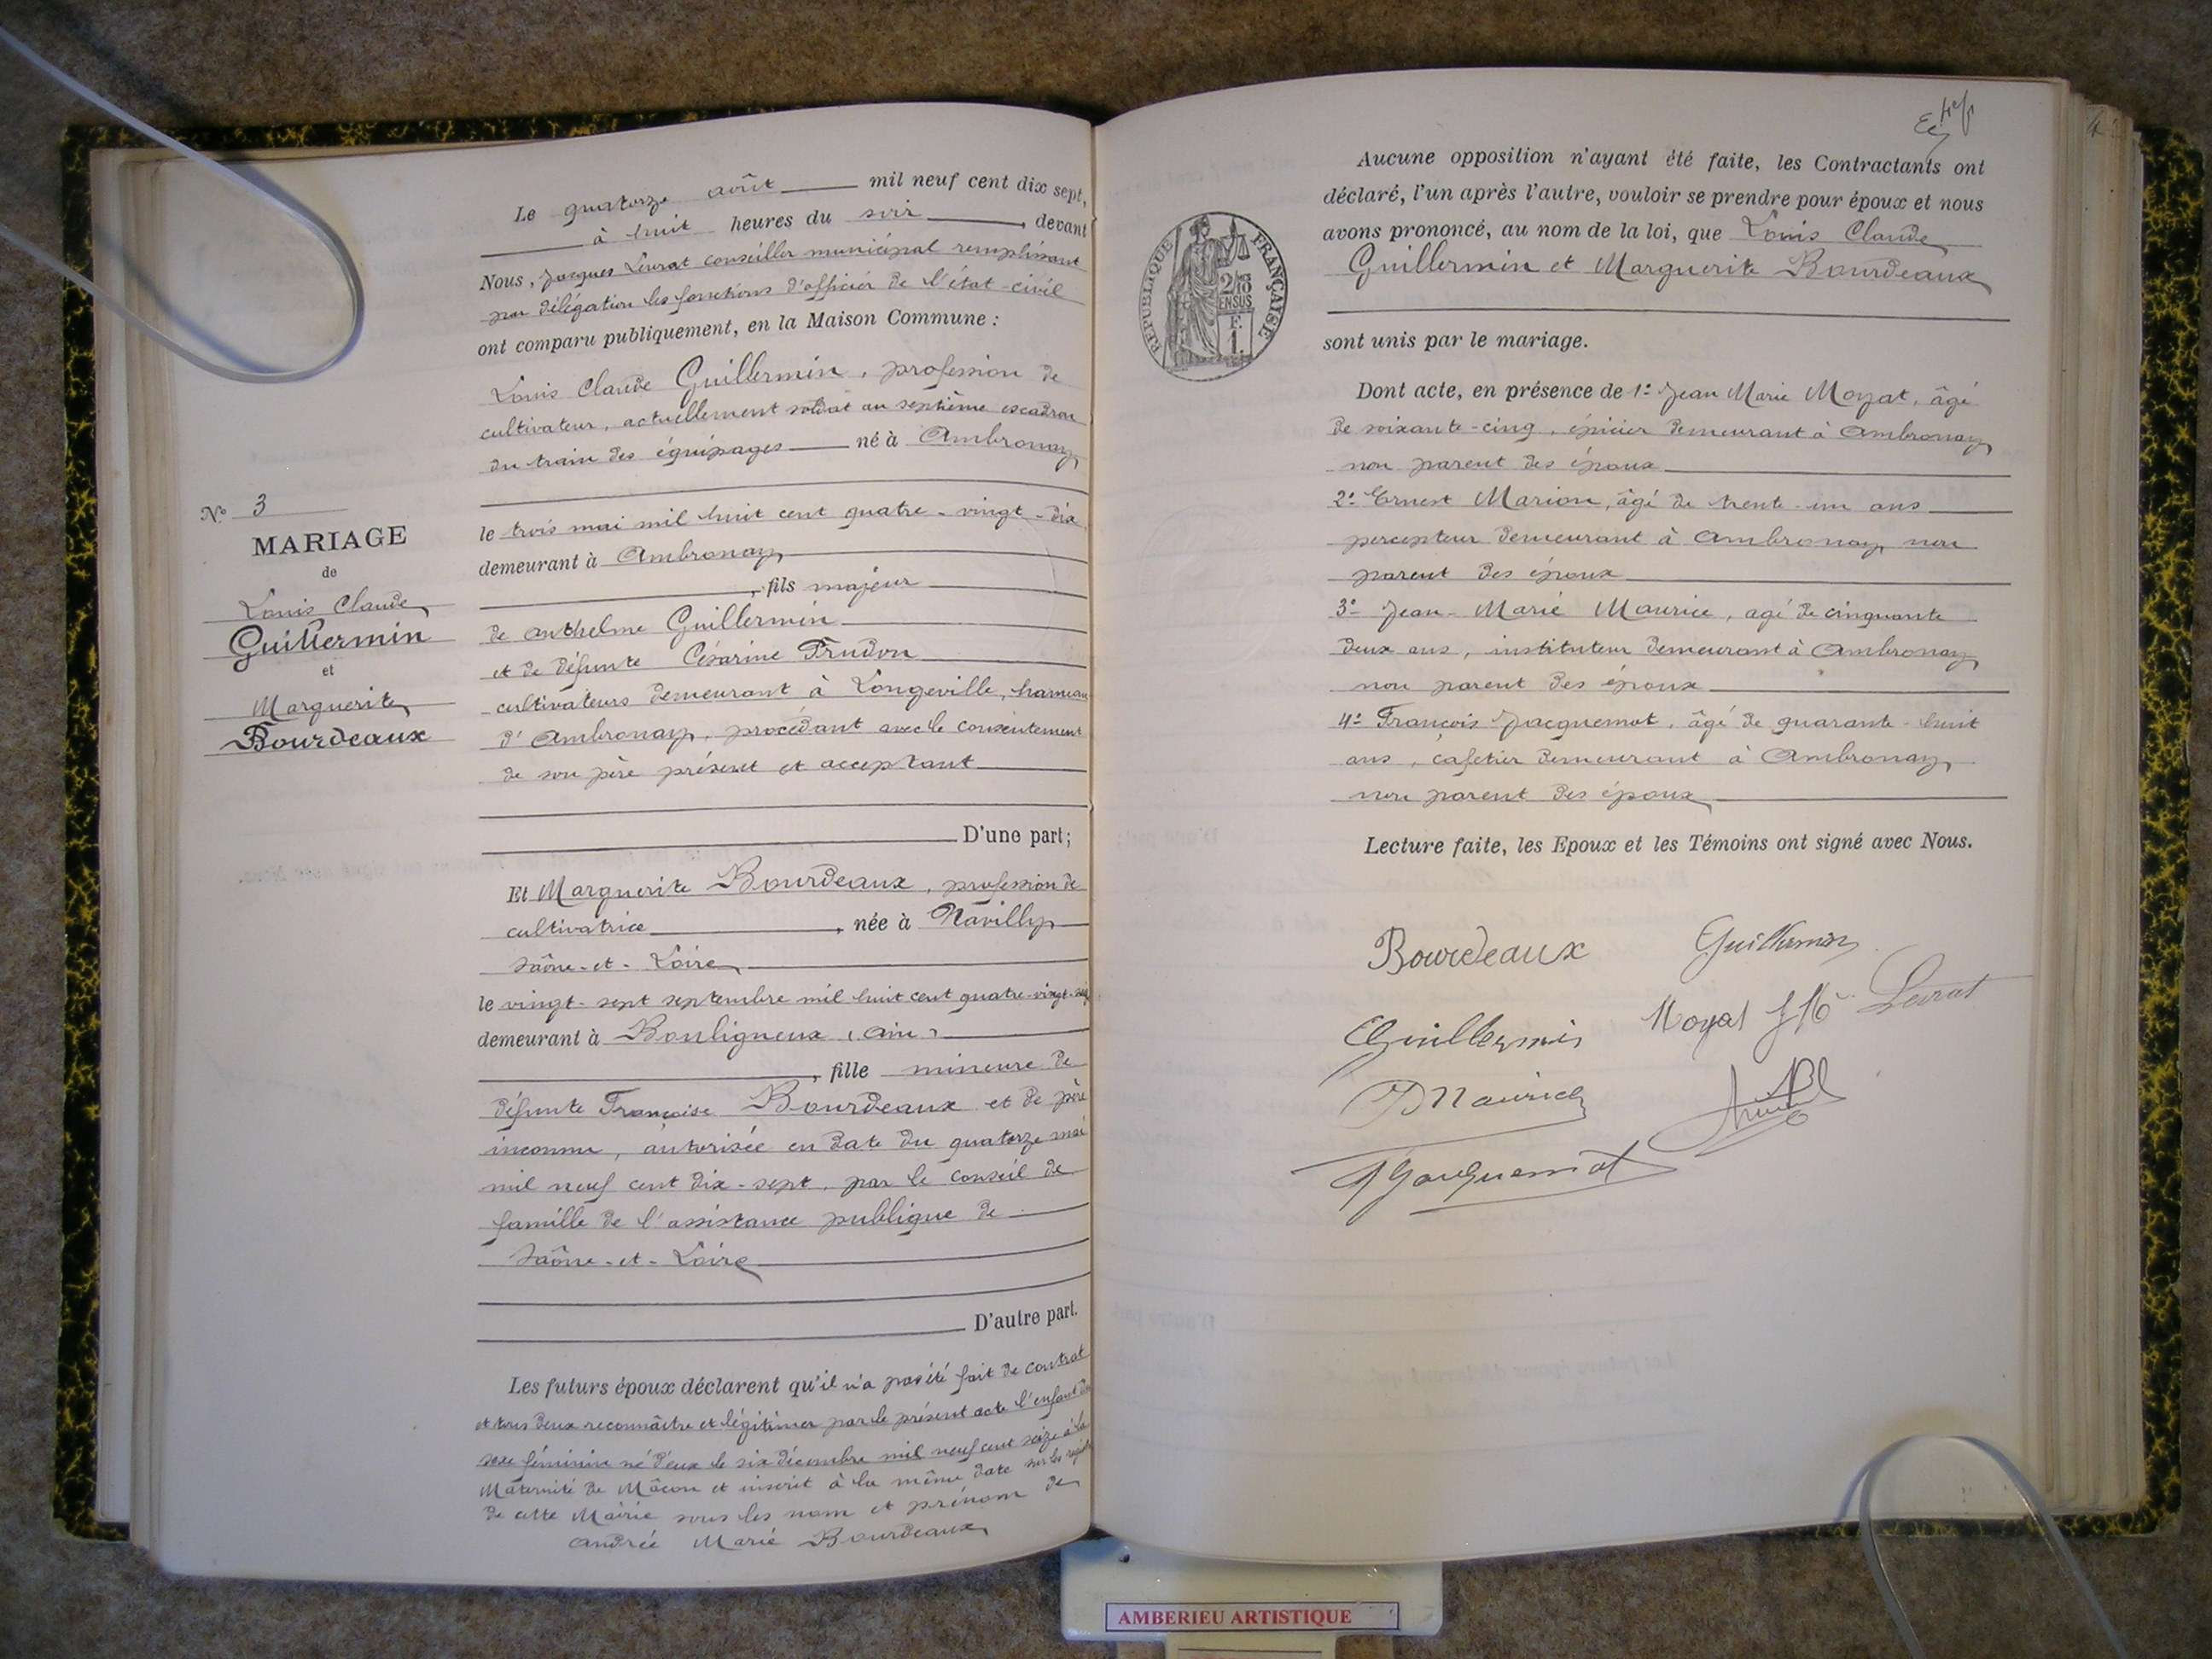 Le quatorze août mil neuf cent dix sept,
à huit heures du soir, devant
Nous, Jacques Levrat conseiller municipal remplissant
par délégation les fonctions d'officier de l'état-civil
ont comparu publiquement, en la Maison Commune :
Louis Claude Guillermin, profession de
cultivateur, actuellement soldat au septième escadron
du train des équipages né à Ambronay
le trois mai mil huit cent quatre-vingt-dix
demeurant à Ambronay
, fils majeur
de Anthelme Guillermin
et de défunte Césarine Trudon
cultivateurs demeurant à Longeville, hameau
d'Ambronay, procédant avec le consentement
de son père présent et acceptant
D'une part;
Nº 3
MARIAGE
de
Louis Claude
Guillermin
et
Marguerite
Bourdeaux
Et Marguerite Bourdeaux, profession de
cultivatrice, née à Navilly
Saône-et-Loire
le vingt-sept septembre mil huit cent quatre-vingt-
demeurant à Bouligneux (Ain)
, fille mineure de
défunte Françoise Bourdeaux et de père
inconnu, autorisée en date du quatorze mai
mil neuf cent dix-sept, par le conseil de
famille de l'assistance publique de
Saône-et-Loire
D'autre part.
Les futurs époux déclarent qu'il n'a pas été fait de contrat
et tous deux reconnaître et légitimer par le présent acte l'enfant du
sexe féminin né d'eux le six décembre mil neuf cent seize à la
Maternité de Mâcon et inscrit à la même date sur les
de cette Mairie sous les nom et prénom de
Andrée Marie Bourdeaux
Aucune opposition n'ayant été faite, les Contractants ont
déclaré, l'un après l'autre, vouloir se prendre pour époux et nous
avons prononcé, au nom de la loi, que Louis Claude
Guillermin et Marguerite Bourdeaux
sont unis par le mariage.
RÉPUBLIQUE FRANÇAISE
2/10
EN SUS
F.
1.
Dont acte, en présence de 1º Jean Marie Moyat, âgé
de soixante-cinq, épicier demeurant à Ambronay
non parent des époux
2º Ernest Marion, âgé de trente-un ans
percepteur demeurant à Ambronay non
parent des époux
3º Jean-Marie Maurice, agé de cinquante
deux ans, instituteur demeurant à Ambronay
non parent des époux
4º François Jacquemot, âgé de quarante-huit
ans, cafetier demeurant à Ambronay
non parent des époux
Lecture faite, les Epoux et les Témoins ont signé avec Nous.
Bourdeaux Guillermin
Guillermin Moyat J M Levrat
Maurice
Jacquemot
AMBERIEU ARTISTIQUE